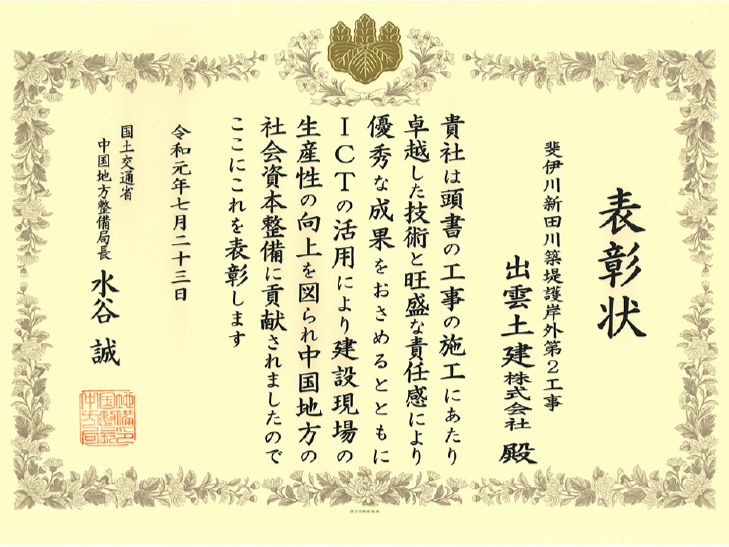 表彰状
斐伊川新田川築堤護岸外第2工事
出雲土建株式会社 殿
貴社は頭書の工事の施工にあたり
卓越した技術と旺盛な責任感により
優秀な成果をおさめるとともに
ICTの活用により建設現場の
生産性の向上を図られ中国地方の
社会資本整備に貢献されましたので
ここにこれを表彰します
令和元年七月二十三日
国土交通省
中国地方整備局長 水谷 誠